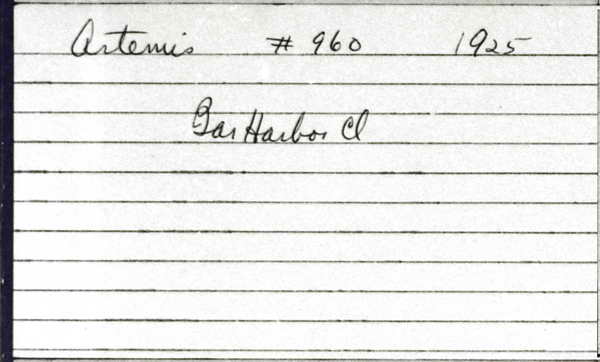 Artemis # 960 1925
Bar Harbor Cl